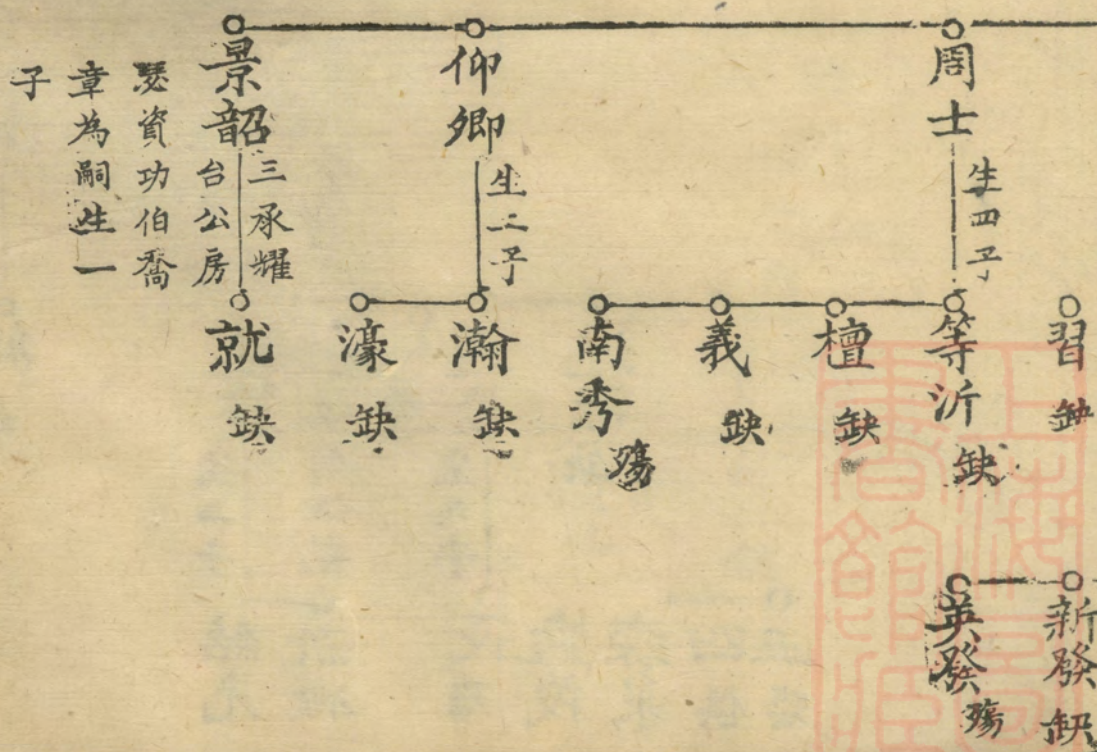 周士
生四子
仰卿
生二子
景韶
三承耀
台公房
瑟資功伯喬
章為嗣生一
子
習 缺
等沂 缺
檀 缺
義 缺
南秀 殤
瀚 缺
濠 缺
就 缺
新發 缺
英發 殤
上海
書館